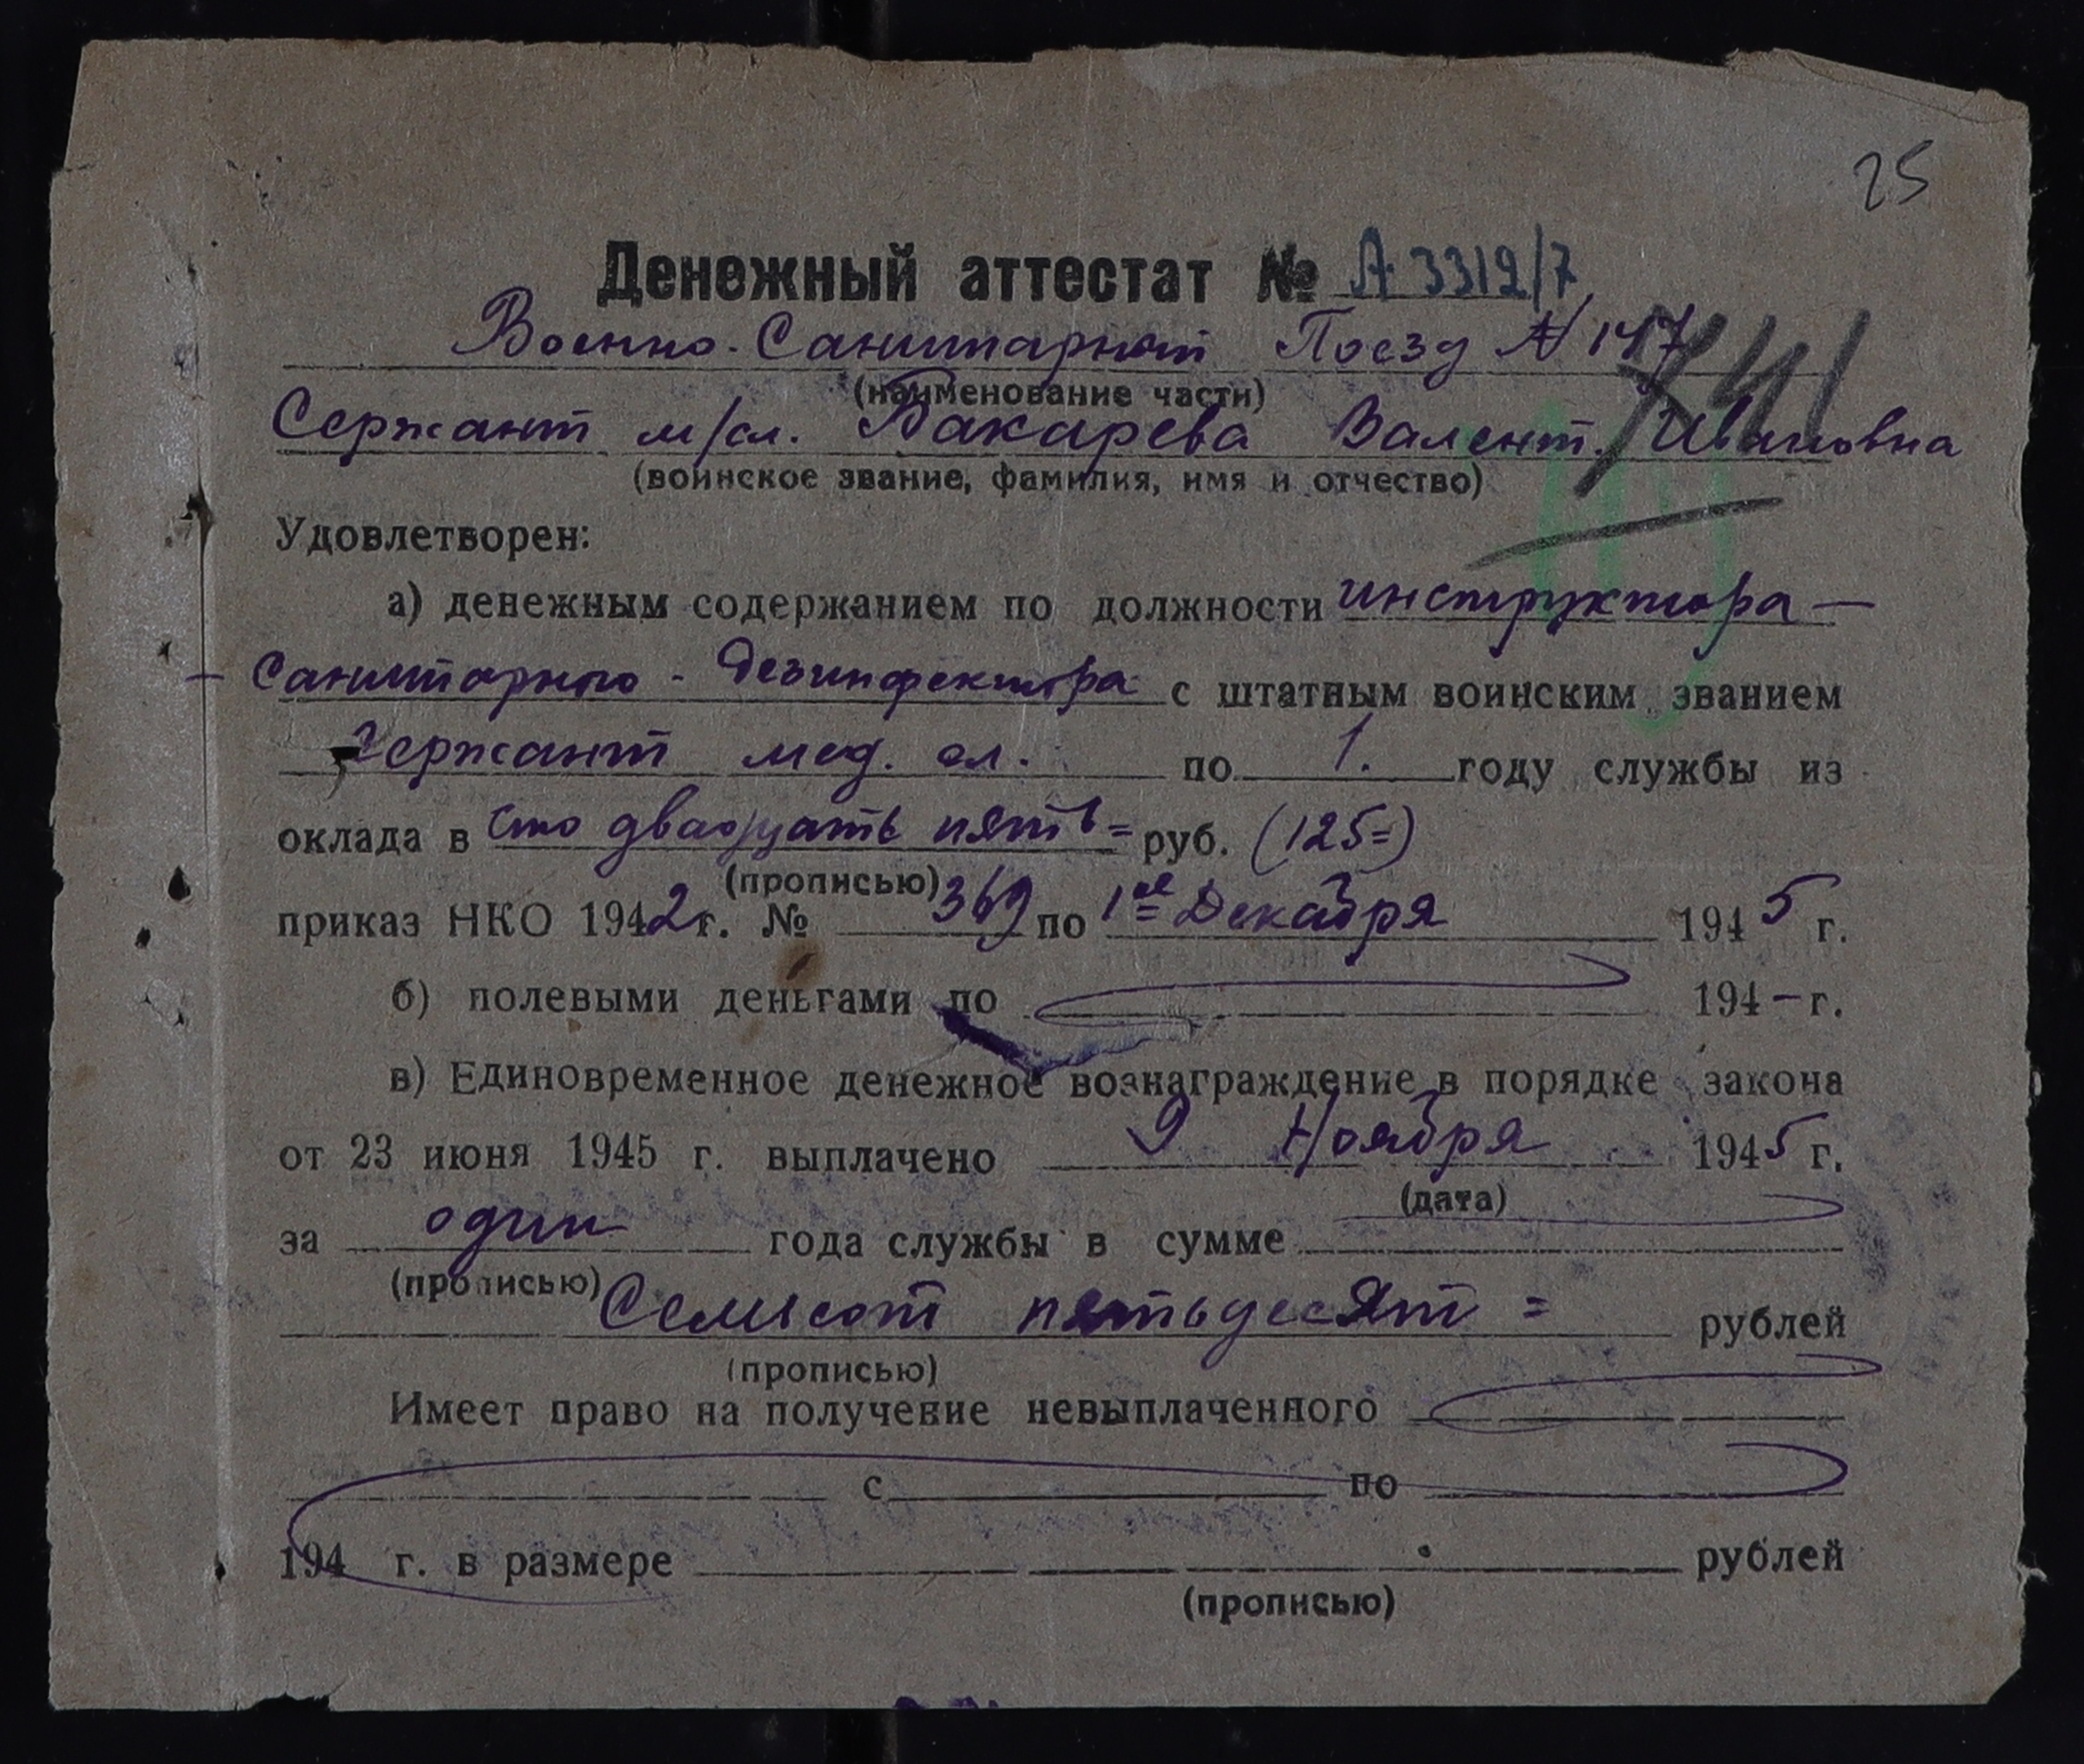 25
Денежный аттестат № А 3312/7
Военно-Санитарный Поезд № 147
741
(наименование части)
Сержант м/сл. Бакарева Валент. Ивановна
(воинское звание, фамилия, имя и отчество)
Удовлетворен:
а) денежным содержанием по должности инструктора —
— санитарного - дезинфектора с штатным воинским званием
сержант мед. сл. по 1. году службы из
оклада в сто двадцать пять = руб. (125=)
(прописью)
приказ НКО 1942 г. № 369 по 1ое Декабря 1945 г.
б) полевыми деньгами по 194 — г.
в) Единовременное денежное вознаграждение в порядке закона
от 23 июня 1945 г. выплачено 9 Ноября 1945 г.
(дата)
за один года службы в сумме
(прописью)
Семьсот пятьдесят = рублей
(прописью)
Имеет право на получение невыплаченного
с по
194 г. в размере рублей
(прописью)